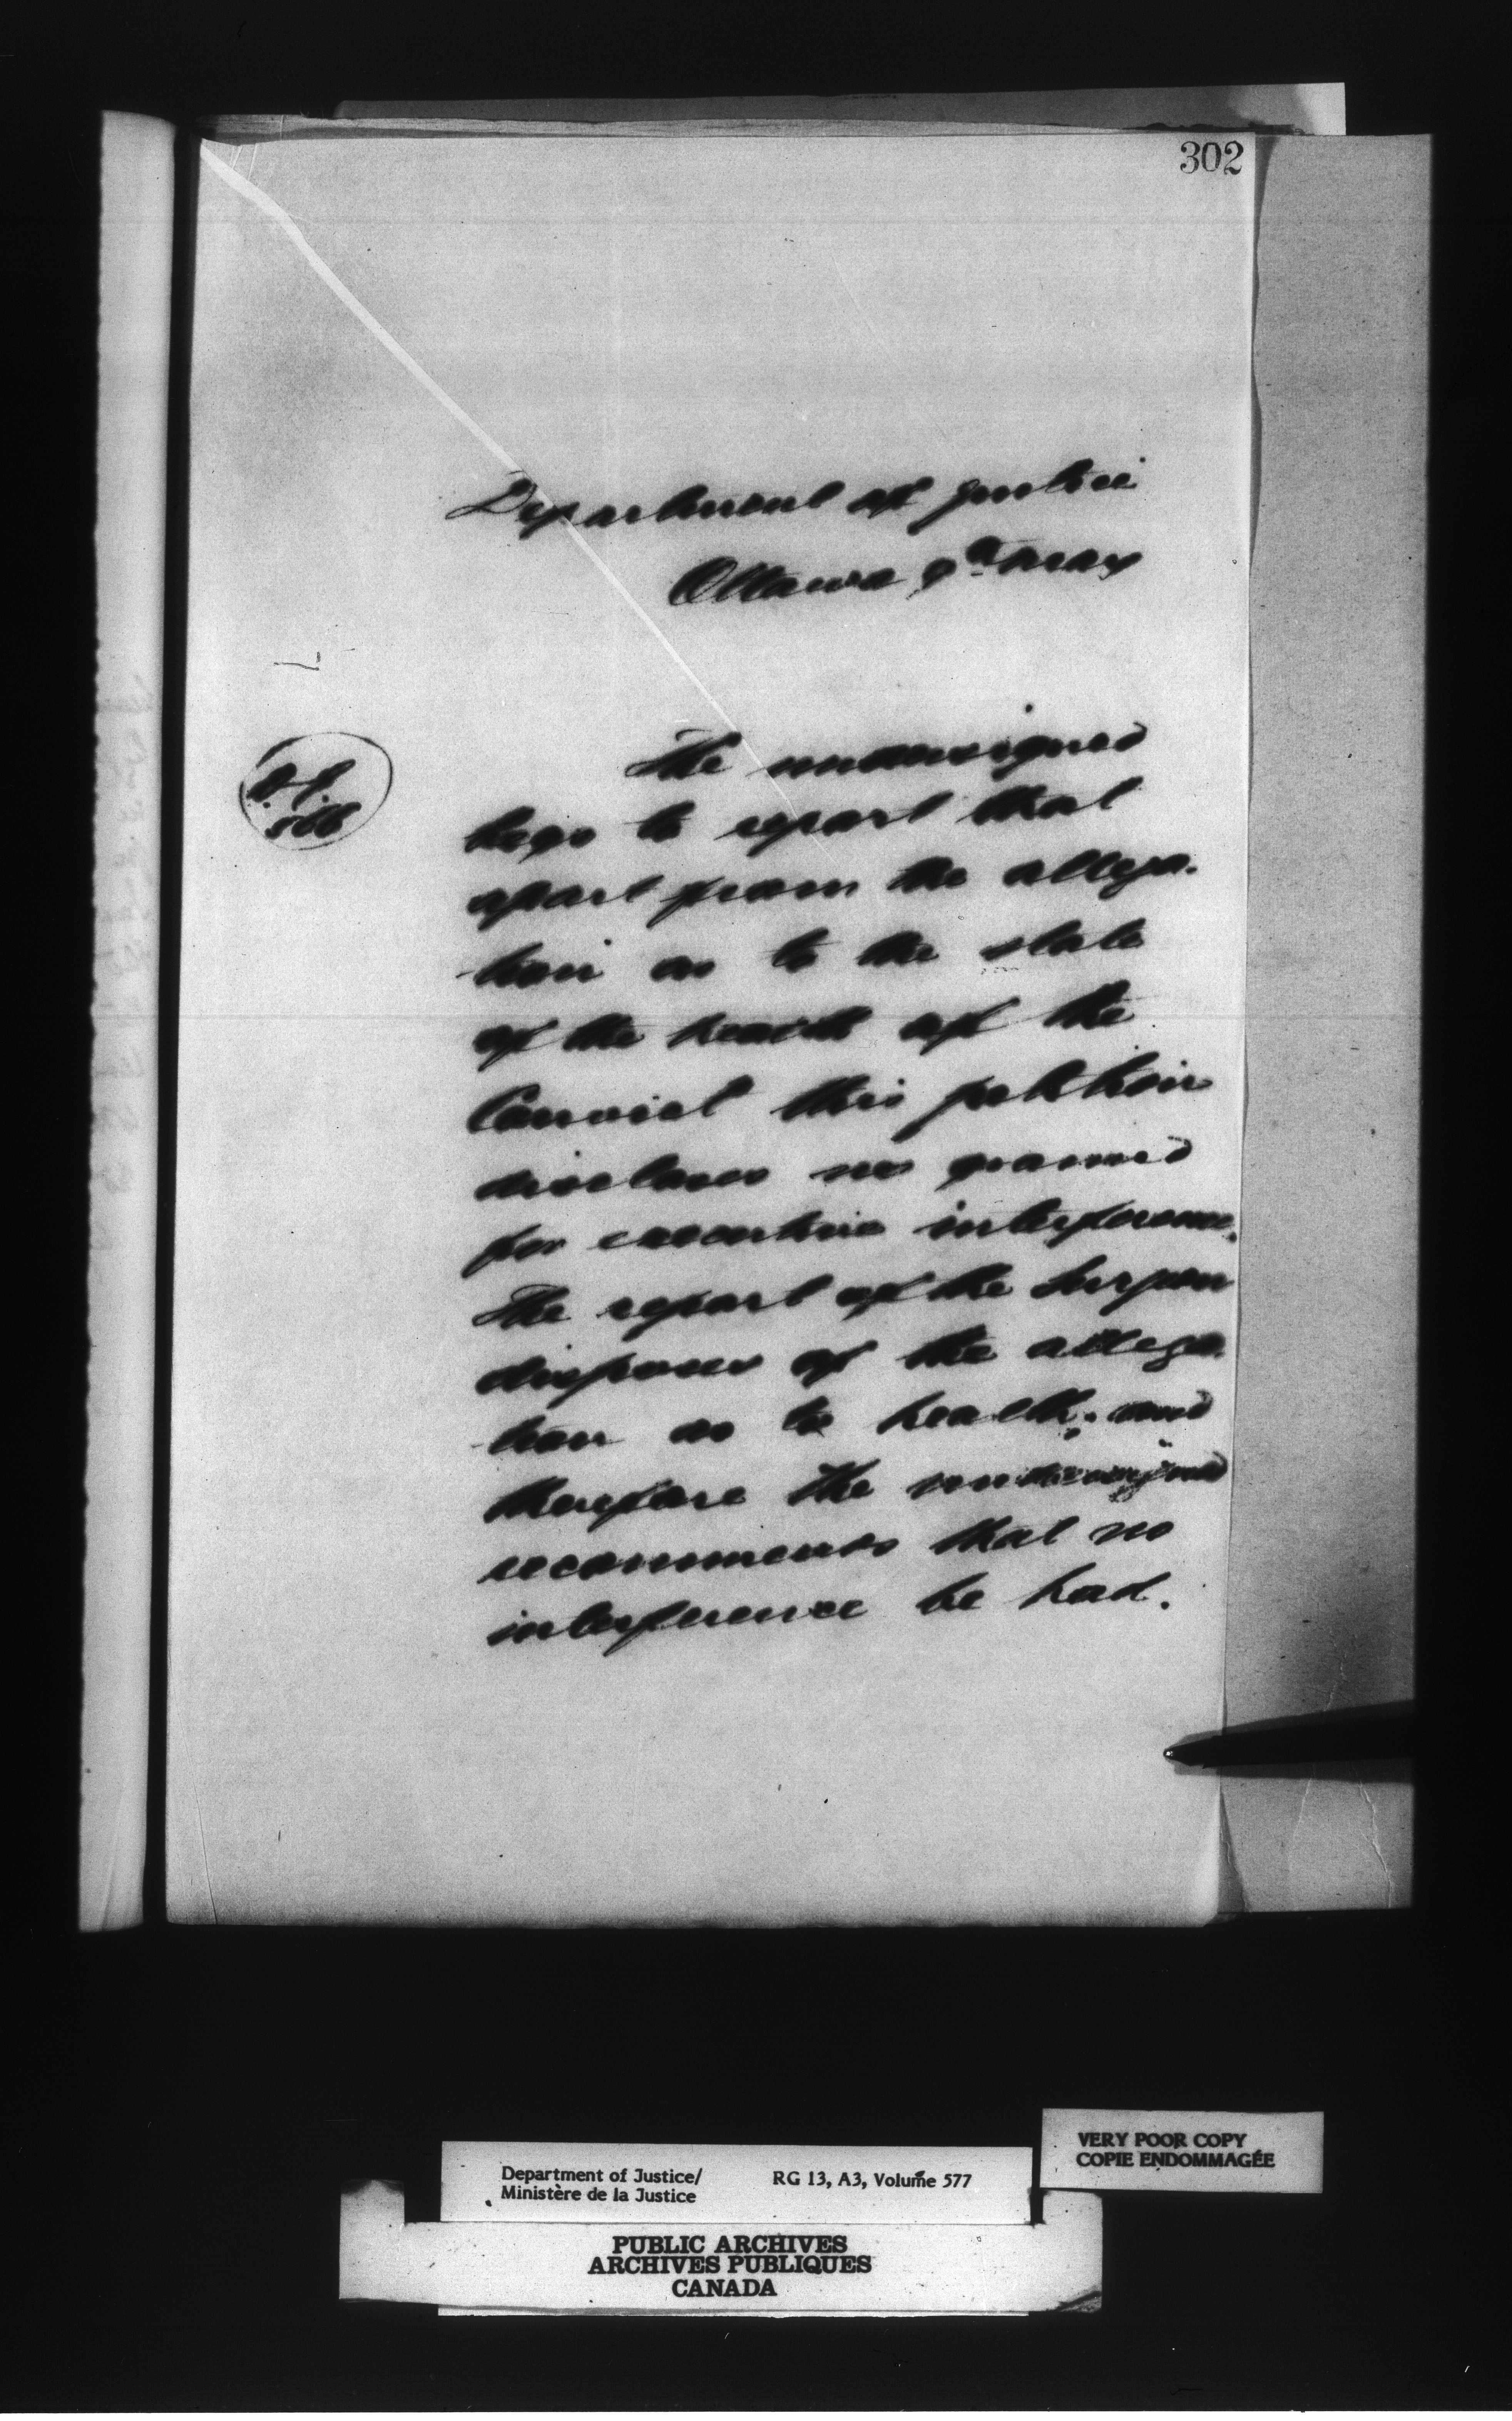 302
Department of Justice
Ottawa 9th May
566
The undersigned
begs to report that
apart from the allega-
tion as to the state
of the health of the
Convict this petition
discloses no ground
for executive interference.
The report of the Surgeon
disposes of the allega-
tion as to health; and
therefore the undersigned
recommends that no
interference be had.
VERY POOR COPY
COPIE ENDOMMAGÉE
Department of Justice/ RG 13, A3, Volume 577
Ministère de la Justice
PUBLIC ARCHIVES
ARCHIVES PUBLIQUES
CANADA